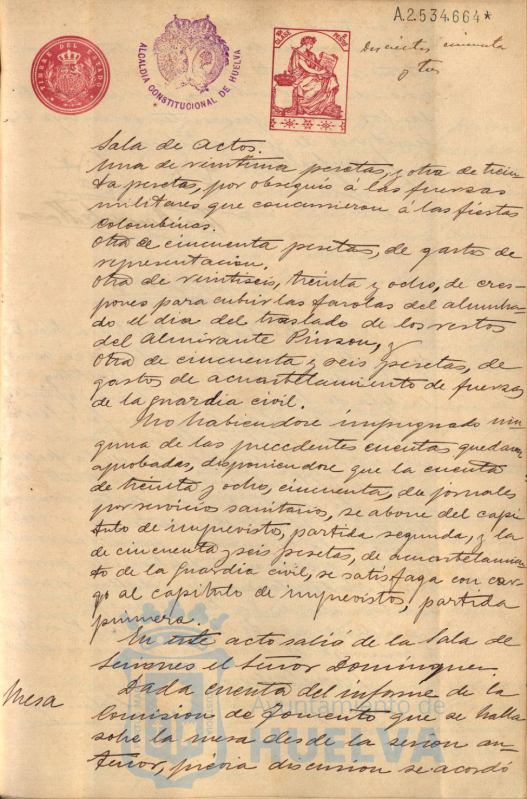 A.2.534.664*
TIMBRE DEL ESTADO
ALCALDIA CONSTITUCIONAL DE HUELVA
Doscientos cincuenta
y tres
Sala de actos.
Una de veintiuna pesetas, y otra de trein
ta pesetas, por obsequio á las fuerzas
militares que concurrieron á las fiestas
Colombinas.
Otra de cincuenta pesetas, de gastos de
representacion.
Otra de veintiseis, treinta y ocho, de cres-
pones para cubrir las farolas del alumbra-
do el dia del traslado de los restos
del Almirante Pinzon, y
Otra de cincuenta y seis pesetas, de
gastos de acuartelamiento de fuerzas
de la guardia civil.
No habiendose impugnado nin
guna de las precedentes cuentas quedaron
aprobadas, disponiendose que la cuenta
de treinta y ocho, cincuenta, de jornales
por servicios sanitarios, se abone del capi
tulo de imprevisto, partida segunda, y la
de cincuenta y seis pesetas, de acuartelamien
to de la Guardia civil, se satisfaga con car
go al capitulo de imprevistos, partida
primera.
En este acto salió de la Sala de
Sesiones el Señor Dominguez
Mesa
Dada cuenta del informe de la
Comision de fomento que se halla
sobre la mesa desde la sesion an-
terior, previa discusion se acordó
Ayuntamiento de
HUELVA